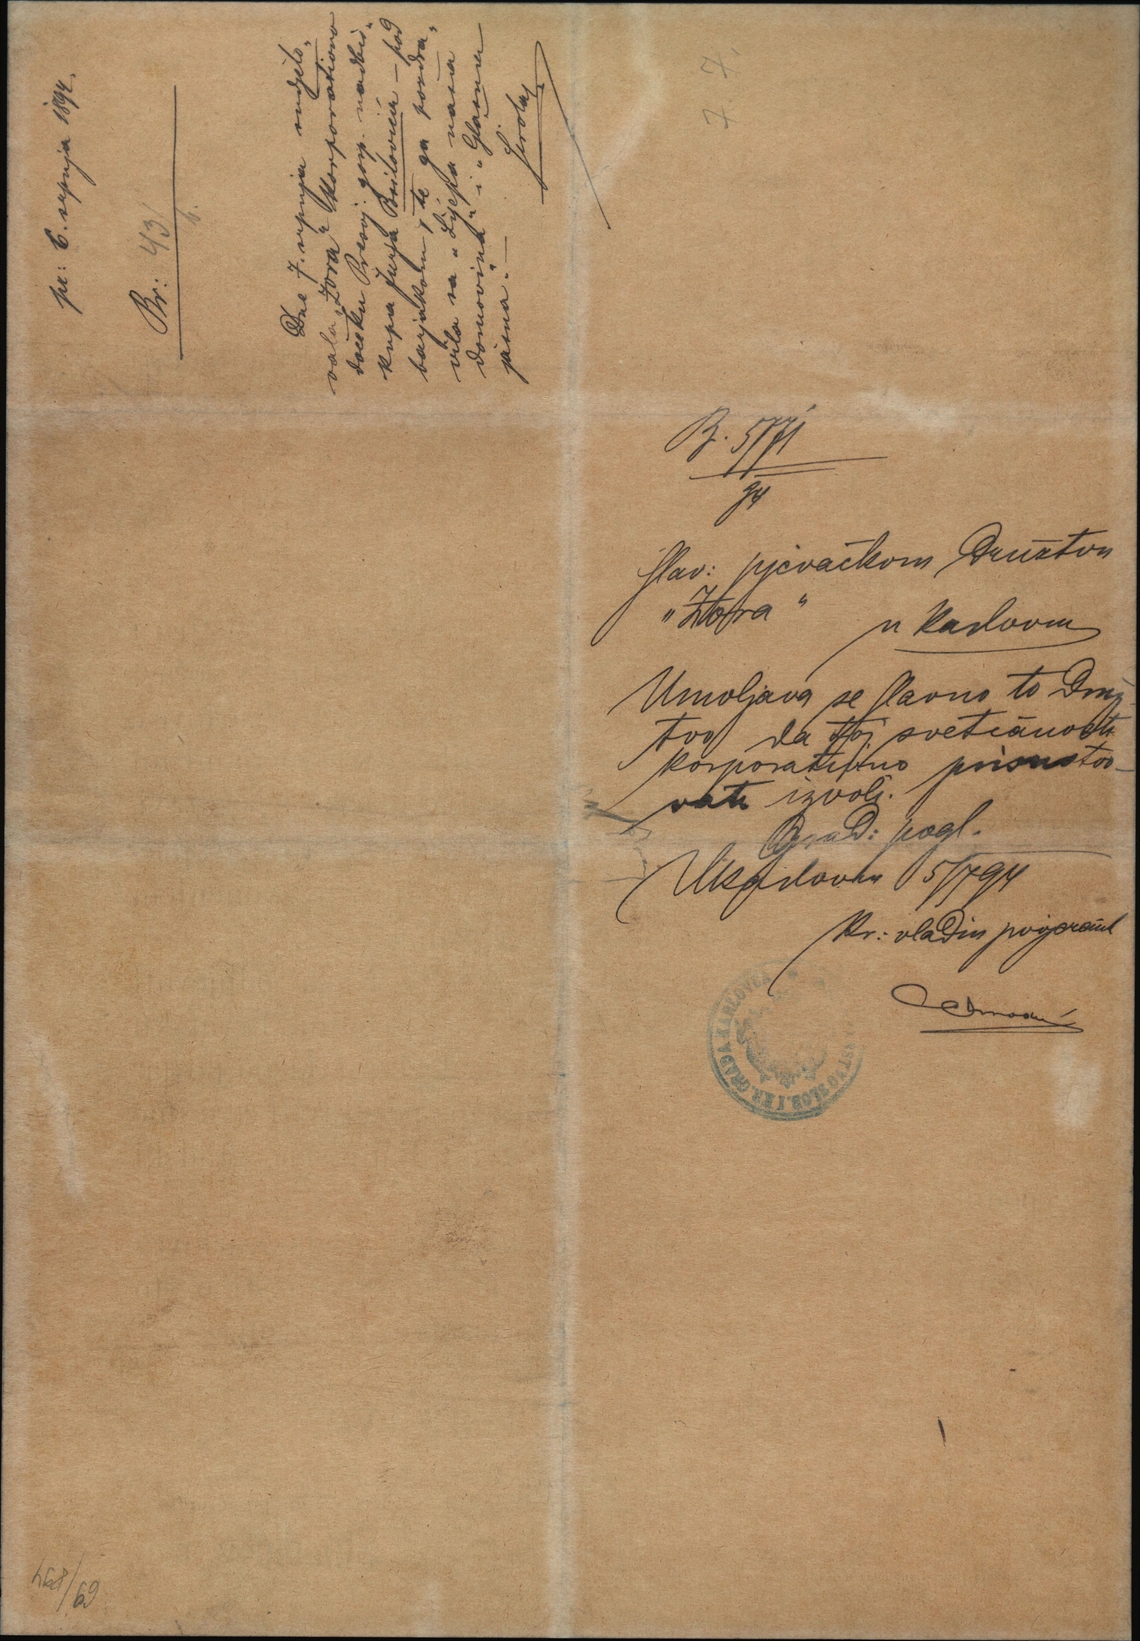 pr: 6. srpnja 1894.
Br: 43/
6.
Dne 7. srpnja sudjelo-
vala "Zora" korporativno
dočeku Presvj. gosp. nadbis-
kupa Jurja Posilovića – pod
barjakom, te ga pozdra-
vila sa "Liepa naša
domovina" i "Glasna
jasna".—
7.
7.
B. 5771
94
Slav: pjevačkom Družtvu
"Zora"
u Karlovcu
Umoljava se slavno to Druž-
tvo da toj svečanosti
korporativno prisustvo-
vati izvoli.
Grad: pogl.
U Karlovcu 5/7 94
Kr: vladin povjerenik
GRADA KARLOVCA
468/69